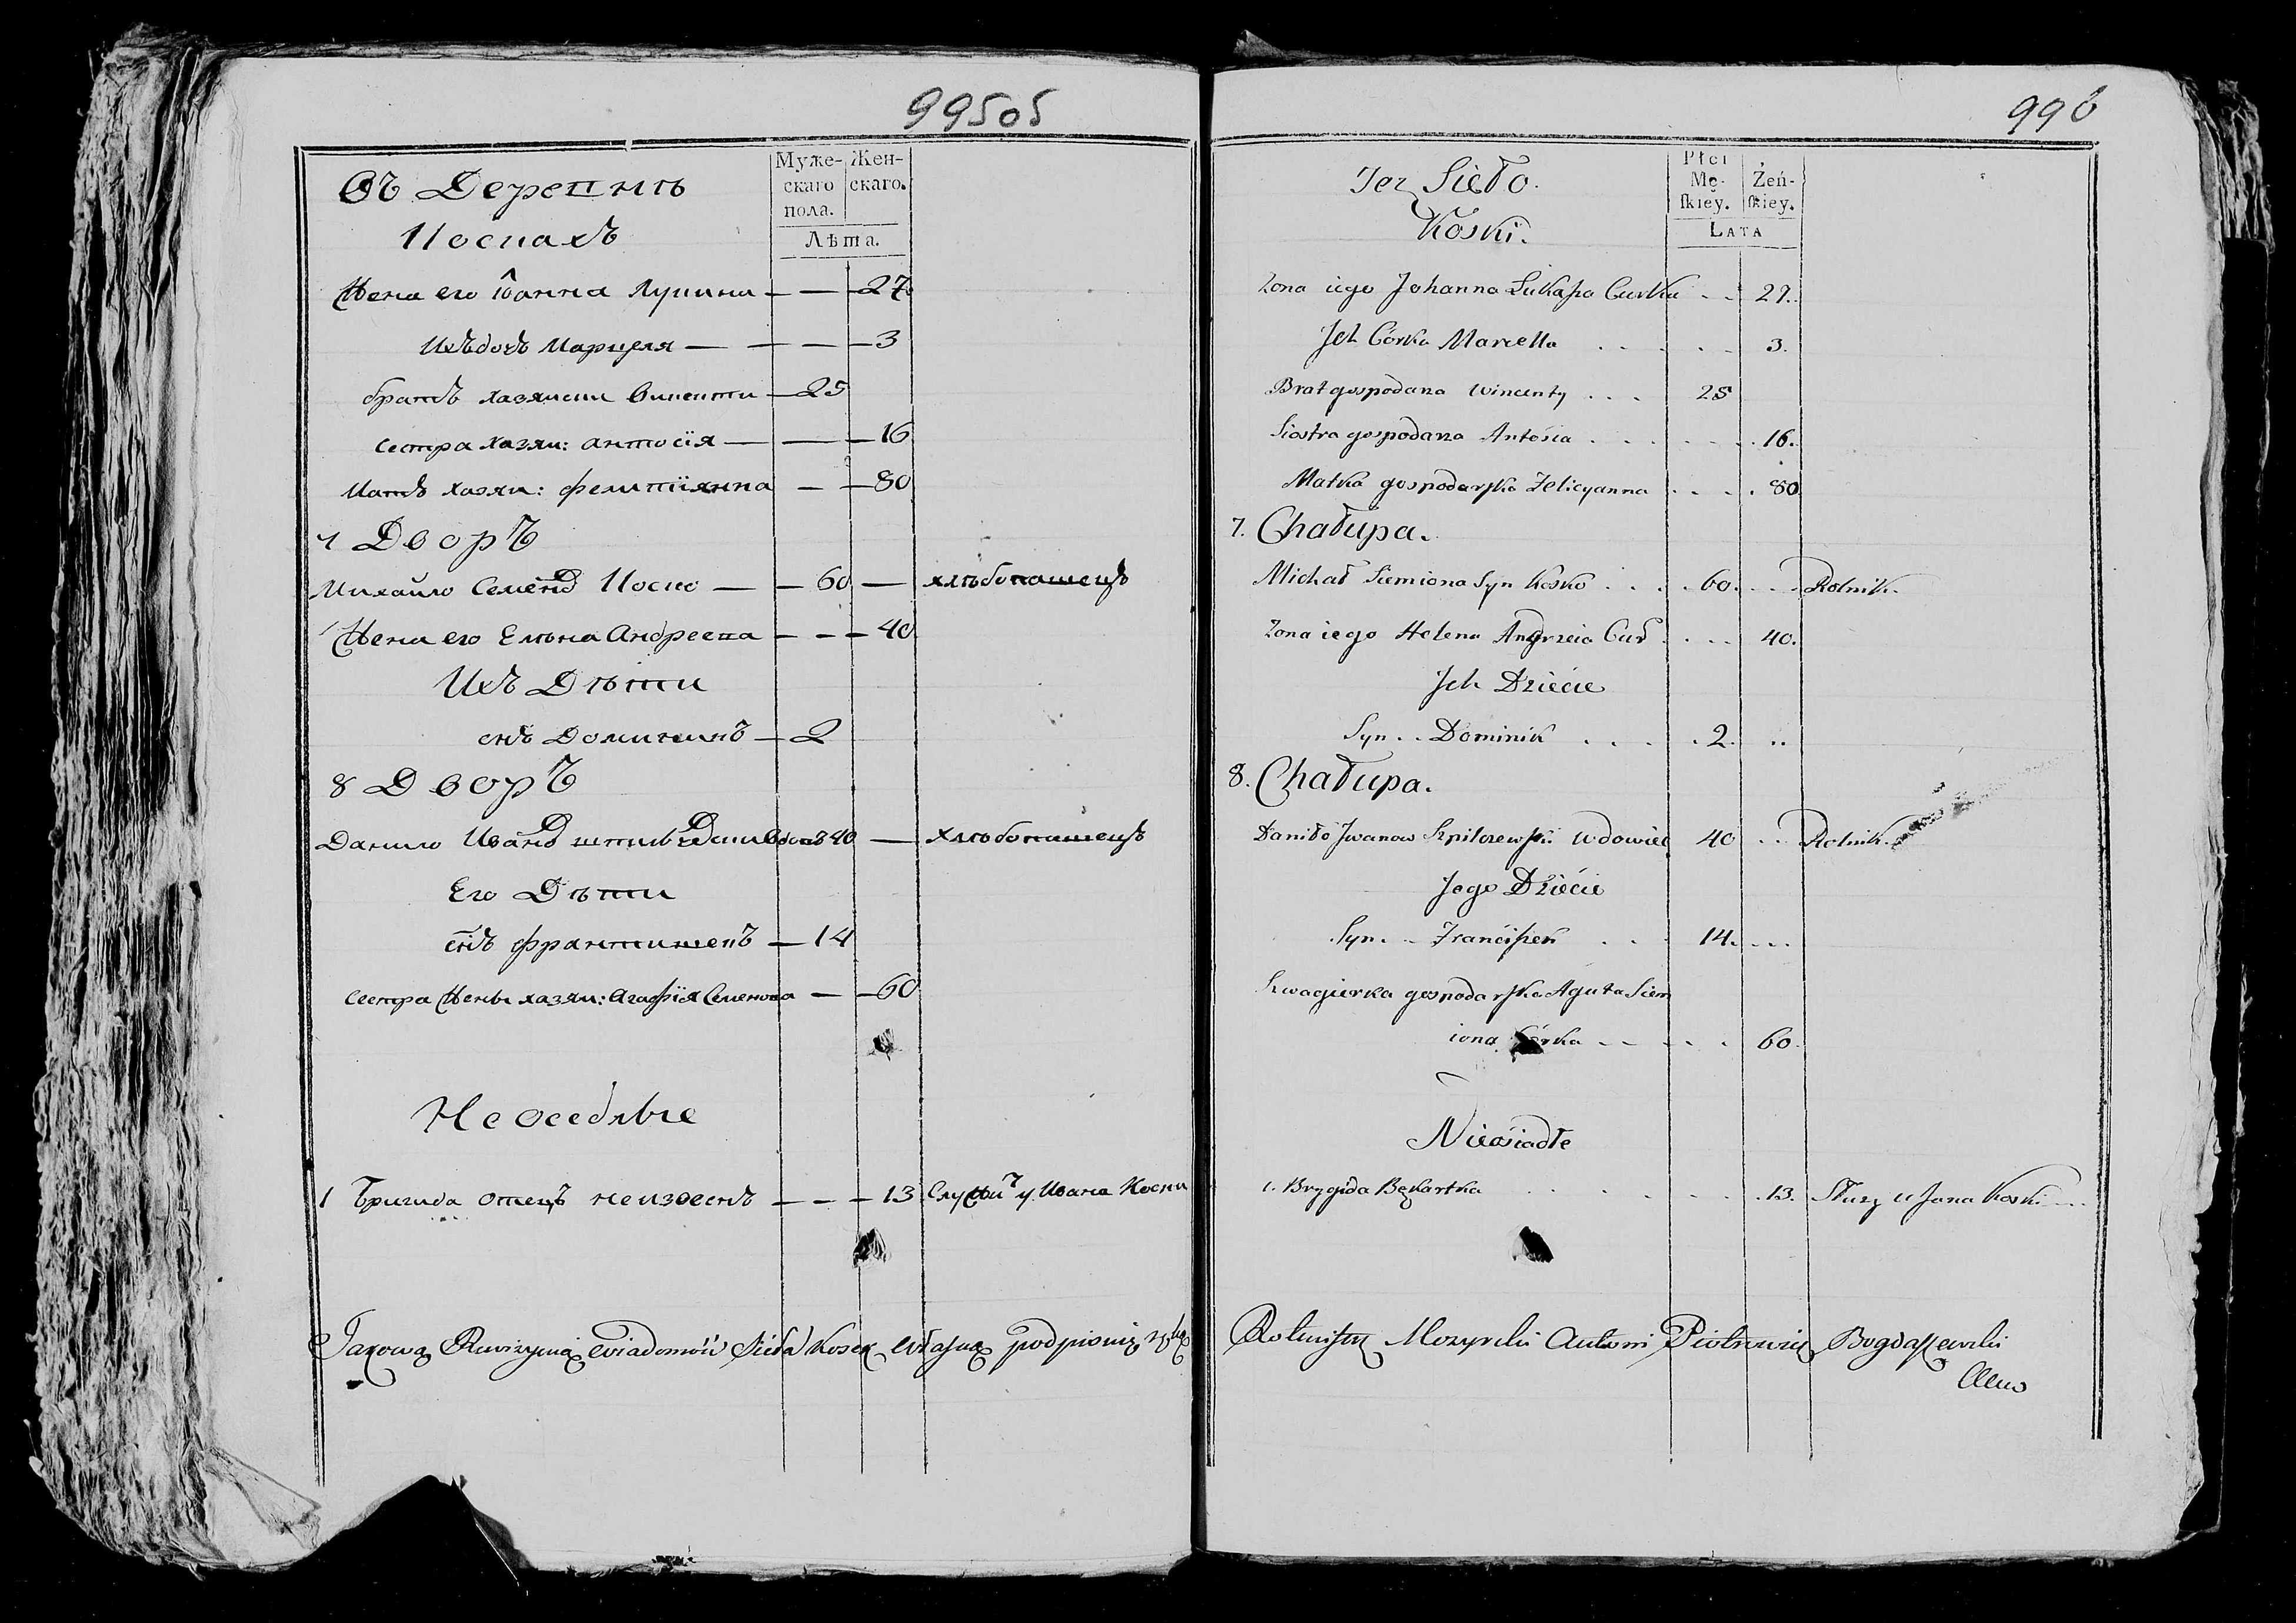 995об
Въ Деревнѣ
Коскахъ
Муже-
скаго
пола.
Жен-
скаго.
Лѣта.
Жена его Іоанна Лукина — — — 27
Ихъ дочь Марцеля — — — — 3
братъ хазяина Винсенти — 25
сестра хазяи: антосія — — — 16
Мать хазяи: фелитіянна — — 80
7 Дворъ
Михайло Семенов Коско — — 60 — хлѣбопашецъ
Жена его Елѣна Андреева — — — 40
Ихъ Дѣти
снъ Доминикъ — 2
8 Дворъ
Данило Иванов 40 — хлѣбопашецъ
Его Дѣти
снъ франтишекъ — 14
Сестра Жены хазяи: Агафія Семенова — — 60
Неоседлые
1 Бригида отецъ неизвестъ — — — 13 Служит у Ивана Коски
Takową Rewizyiną wiadomość Sioła Kosek własną podpisuię ręką
996
Tez Sioło.
Koski.
Płci
Mę-
skiey.
Żeń-
skiey.
LATA
Zona iego Johanna Łukasza Curka . . 27.
Jch Córka Marcella . . . . . 3.
Brat gospodarza Wincenty . . . 25
Siostra gospodarza Antosia . . . . . . 16.
Matka gospodarska Felicyanna . . . . 80
7. Chałupa.
Michał Siemiona Syn Kosko . . . . 60. . . . Rolnik.
Zona iego Helena Andrzeia Cur . . . . 40.
Jch Dziecie
Syn . . Dominik . . . . 2. ..
8. Chałupa.
Daniło Jwanow Szpilozewski Wdowiec 40 . . Rolnik.
Jego Dziecie
Syn. . . Franciszek . . . 14. . . .
Szwagierka gospodarska Agata Siem
iona Córka . . . . . 60.
Nieosiadłe
1. Brygida Bękartka . . . . . . 13. Służy u Jana Koski
Rotmistrz Mozyrski Antoni Piotrowicz Bogdaszewski